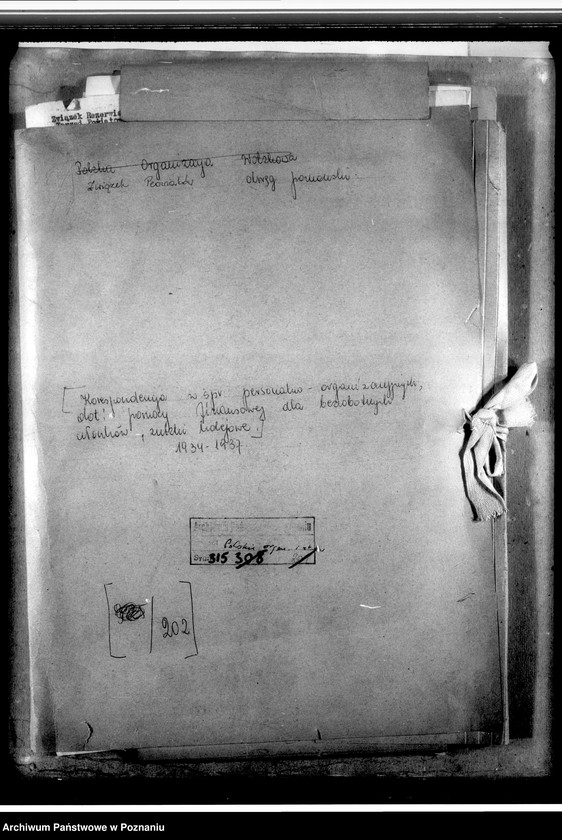 Związek Rezerwi
Polska Organizacja Wojskowa
Związek Peowiaków okręg poznański
[Korespondencja w spr. personalno-organizacyjnych,
dot. pomocy finansowej dla bezrobotnych
członków, zniżki kolejowe.]
1934-1937
Polska
315 308
202
Archiwum Państwowe w Poznaniu